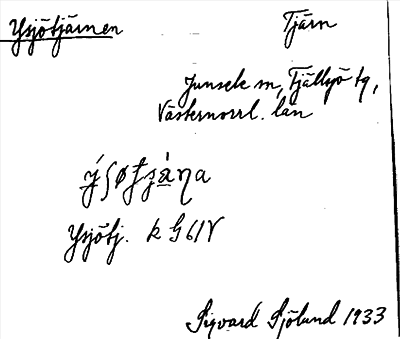 Ysjötjärnen Tjärn
Junsele sn, Fjällsjö tg,
Västernorrl. län
Ysjötj. k G61V
Sigvard Sjöland 1933